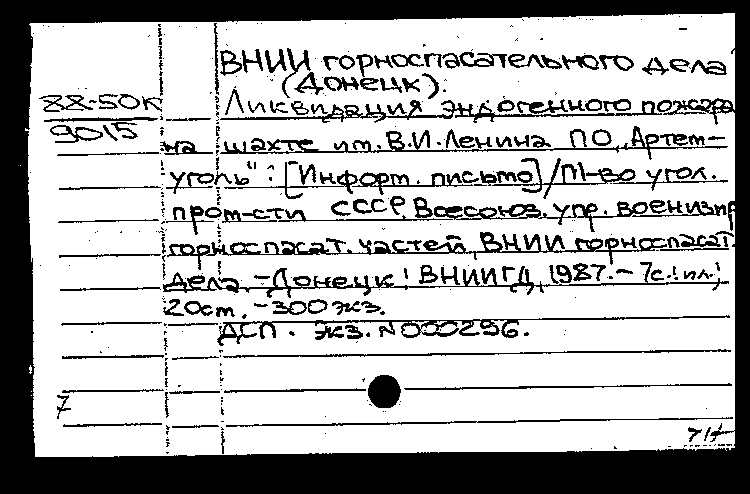 ВНИИ горноспасательного дела
(Донецк).
88-50К
9015
Ликвидация эндогенного пожара
на шахте им. В.И.Ленина ПО „Артем-
уголь": [Информ. письмо]/М-во угол.
пром-сти СССР, Всесоюз. упр. военизир
горноспасат. частей, ВНИИ горноспасат.
дела. -Донецк: ВНИИГД, 1987.- 7с.: ил.;
20см. -300 экз.
ДСП. Экз. N000296.
7